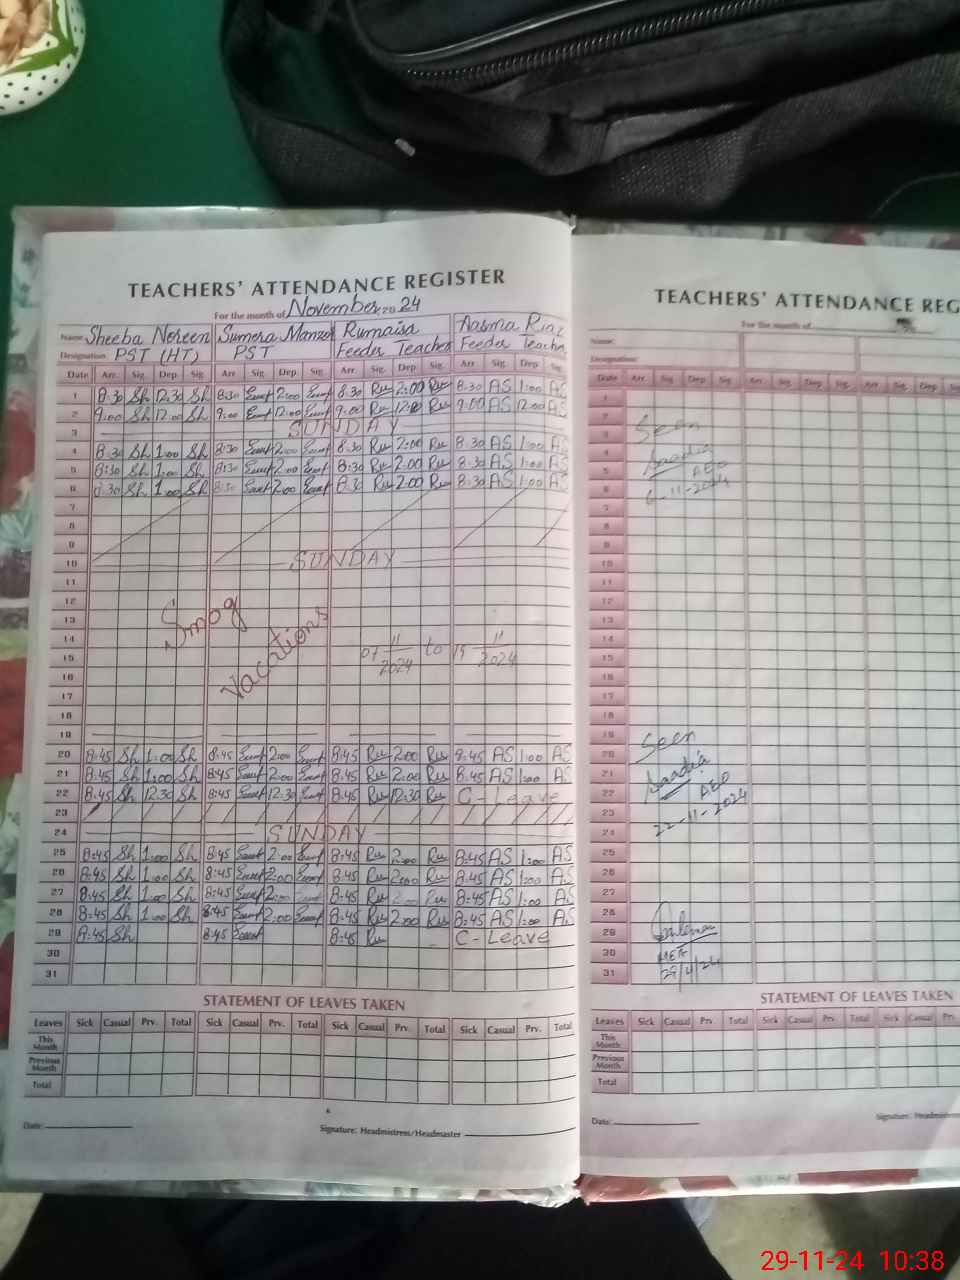 TEACHERS' ATTENDANCE REGISTER
For the month of November 2024
Name Sheeba Noreen Sumera Manzoor Rumaisa Aasma Riaz
Designation PST (HT) PST Feeder Teacher Feeder Teacher
Date Arr. Sig. Dep. Sig. Arr Sig. Dep. Sig. Arr Sig. Dep Sig. Arr Sig. Dep Sig.
1 8:30 Sh 12:30 Sh 8:30 2:00 8:30 Ru 2:00 Ru 8:30 AS 1:00 AS
2 9:00 Sh 12:00 Sh 9:00 12:00 9:00 Ru 12:00 Ru 9:00 AS 12:00 AS
3 SUNDAY
4 8:30 Sh 1:00 Sh 8:30 2:00 8:30 Ru 2:00 Ru 8:30 AS 1:00 AS
5 8:30 Sh 1:00 Sh 8:30 2:00 8:30 Ru 2:00 Ru 8:30 AS 1:00 AS
6 8:30 Sh 1:00 Sh 8:30 2:00 8:30 Ru 2:00 Ru 8:30 AS 1:00 AS
7
8
9
10 SUNDAY
11
12
13 Smog
14
15 Vacations 07 11/2024 to 19 11/2024
16
17
18
19
20 8:45 Sh 1:00 Sh 8:45 2:00 8:45 Ru 2:00 Ru 8:45 AS 1:00 AS
21 8:45 Sh 1:00 Sh 8:45 2:00 8:45 Ru 2:00 Ru 8:45 AS 1:00 AS
22 8:45 Sh 12:30 Sh 8:45 12:30 8:45 Ru 12:30 Ru C-Leave
23
24 SUNDAY
25 8:45 Sh 1:00 Sh 8:45 2:00 8:45 Ru 2:00 Ru 8:45 AS 1:00 AS
26 8:45 Sh 1:00 Sh 8:45 2:00 8:45 Ru 2:00 Ru 8:45 AS 1:00 AS
27 8:45 Sh 1:00 Sh 8:45 2:00 8:45 Ru 2:00 Ru 8:45 AS 1:00 AS
28 8:45 Sh 1:00 Sh 8:45 2:00 8:45 Ru 2:00 Ru 8:45 AS 1:00 AS
29 8:45 Sh 8:45 8:45 Ru C-Leave
30
31
STATEMENT OF LEAVES TAKEN
Leaves Sick Casual Prv. Total Sick Casual Prv. Total Sick Casual Prv. Total Sick Casual Prv. Total
This Month
Previous Month
Total
Date:
Signature: Headmistress/Headmaster
TEACHERS' ATTENDANCE REG
For the month of
Name:
Designation:
Date Arr Sig. Dep. Sig. Arr Sig. Dep. Sig. Arr Sig. Dep Sig
1
2
3 Seen
4 Saadia
5 AEO
6 6-11-2024
7
8
9
10
11
12
13
14
15
16
17
18
19
20 Seen
21 Saadia
22 AEO
23 22-11-2024
24
25
26
27
28
29
30 MEA
31
STATEMENT OF LEAVES TAKEN
Leaves Sick Casual Prv. Total Sick Casual Prv. Total Sick Casual Prv.
This Month
Previous Month
Total
Date:
Signature: Headmistress
29-11-24 10:38